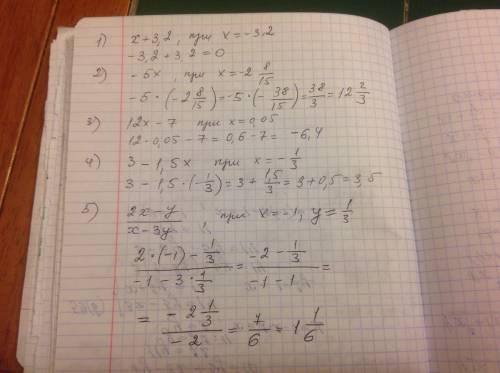 1) x+3,2, при x=-3,2
-3,2+3,2=0
2) -5x, при x=-2 8/15
-5·(-2 8/15)=-5·(-38/15)=38/3=12 2/3
3) 12x-7 при x=0,05
12·0,05-7=0,6-7=-6,4
4) 3-1,5x при x=-1/3
3-1,5·(-1/3)=3+1,5/3=3+0,5=3,5
5) 2x-y при x=-1, y=1/3
x-3y
(2·(-1)-1/3)/(-1-3·1/3)=(-2-1/3)/(-1-1)=
=(-2 1/3)/(-2)=7/6=1 1/6